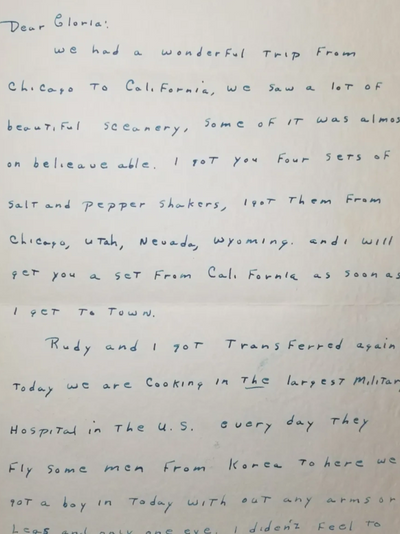 Dear Gloria:
We had a wonderful Trip From
Chicago To California, we saw a lot of
beautiful sceanery, some of it was almos
on belieave able. I got you four sets of
salt and pepper shakers, I got Them From
Chicago, Utah, Nevada, Wyoming. and I will
get you a set From California as soon as
I get To Town.
Rudy and I got Transferred again
Today we are Cooking in The largest Militar
Hospital in The U.S. every day They
Fly some men From Korea To here we
got a boy in Today with out any arms or
Legs and only one eye. I diden't Feel To